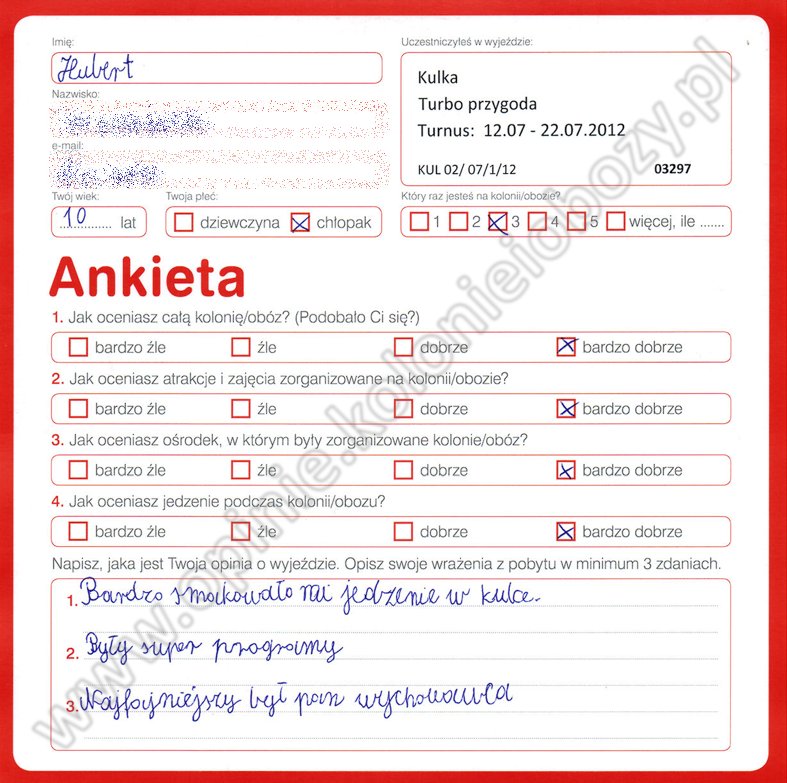 Imię:
Hubert
Nazwisko:
e-mail:
Twój wiek:
10 lat
Twoja płeć:
dziewczyna chłopak
Uczestniczyłeś w wyjeździe:
Kulka
Turbo przygoda
Turnus: 12.07 - 22.07.2012
KUL 02/ 07/1/12 03297
Który raz jesteś na kolonii/obozie?
1 2 3 4 5 więcej, ile .......
Ankieta
1. Jak oceniasz całą kolonię/obóz? (Podobało Ci się?)
bardzo źle źle dobrze bardzo dobrze
2. Jak oceniasz atrakcje i zajęcia zorganizowane na kolonii/obozie?
bardzo źle źle dobrze bardzo dobrze
3. Jak oceniasz ośrodek, w którym były zorganizowane kolonie/obóz?
bardzo źle źle dobrze bardzo dobrze
4. Jak oceniasz jedzenie podczas kolonii/obozu?
bardzo źle źle dobrze bardzo dobrze
Napisz, jaka jest Twoja opinia o wyjeździe. Opisz swoje wrażenia z pobytu w minimum 3 zdaniach.
1. Bardzo smakowało mi jedzenie w kulce.
2. Były super programy
3. Najfajniejszy był pan wychowawca
www.opinie.kolonieiobozy.pl